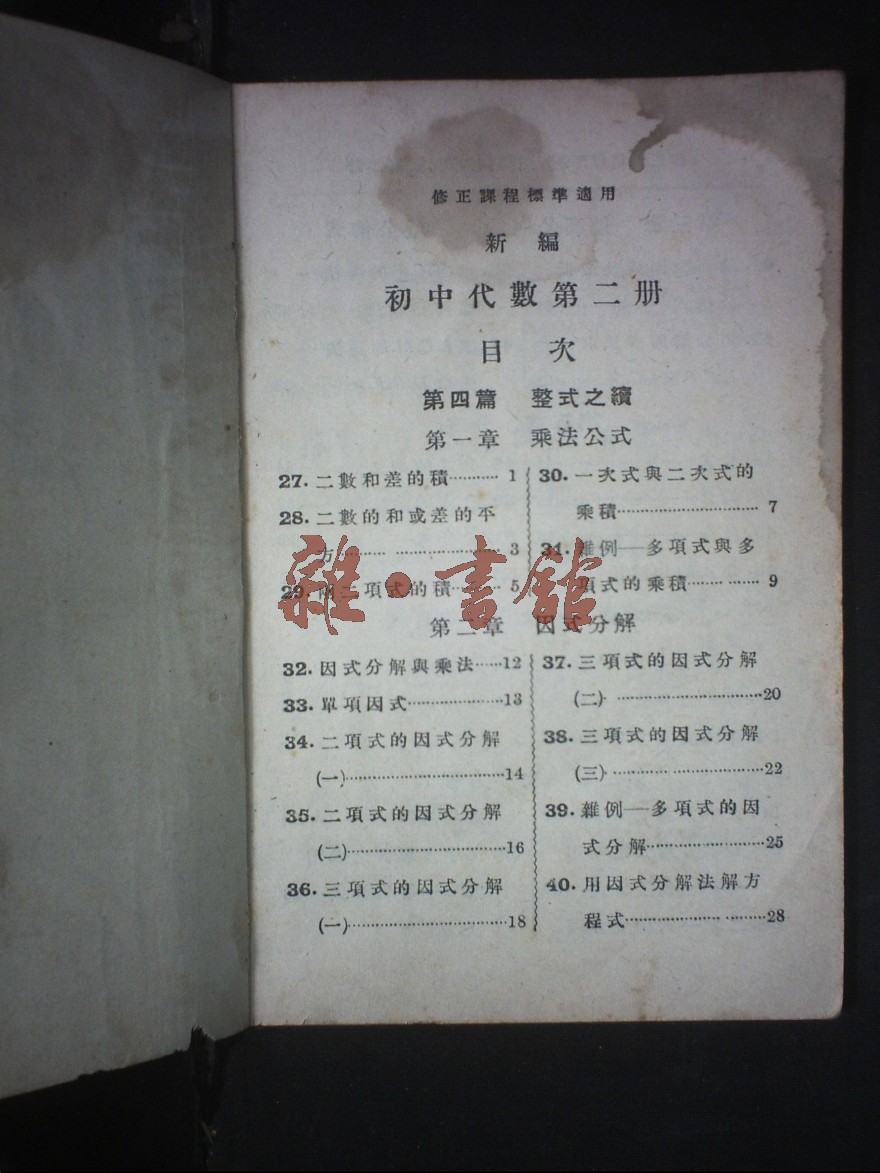 修正課程標準適用
新編
初中代數第二册
目次
第四篇 整式之續
第一章 乘法公式
27.二數和差的積………… 1
28.二數的和或差的平
方………………… 3
29.兩二項式的積………… 5
30.一次式與二次式的
乘積………………………… 7
31.雜例—多項式與多
項式的乘積…………… 9
第二章 因式分解
32.因式分解與乘法……12
33.單項因式…………………13
34.二項式的因式分解
(一)……………………………14
35.二項式的因式分解
(二)……………………………16
36.三項式的因式分解
(一)……………………………18
37.三項式的因式分解
(二)…………………………20
38.三項式的因式分解
(三)…………………………22
39.雜例—多項式的因
式分解……………………25
40.用因式分解法解方
程式………………………28
雜·書館